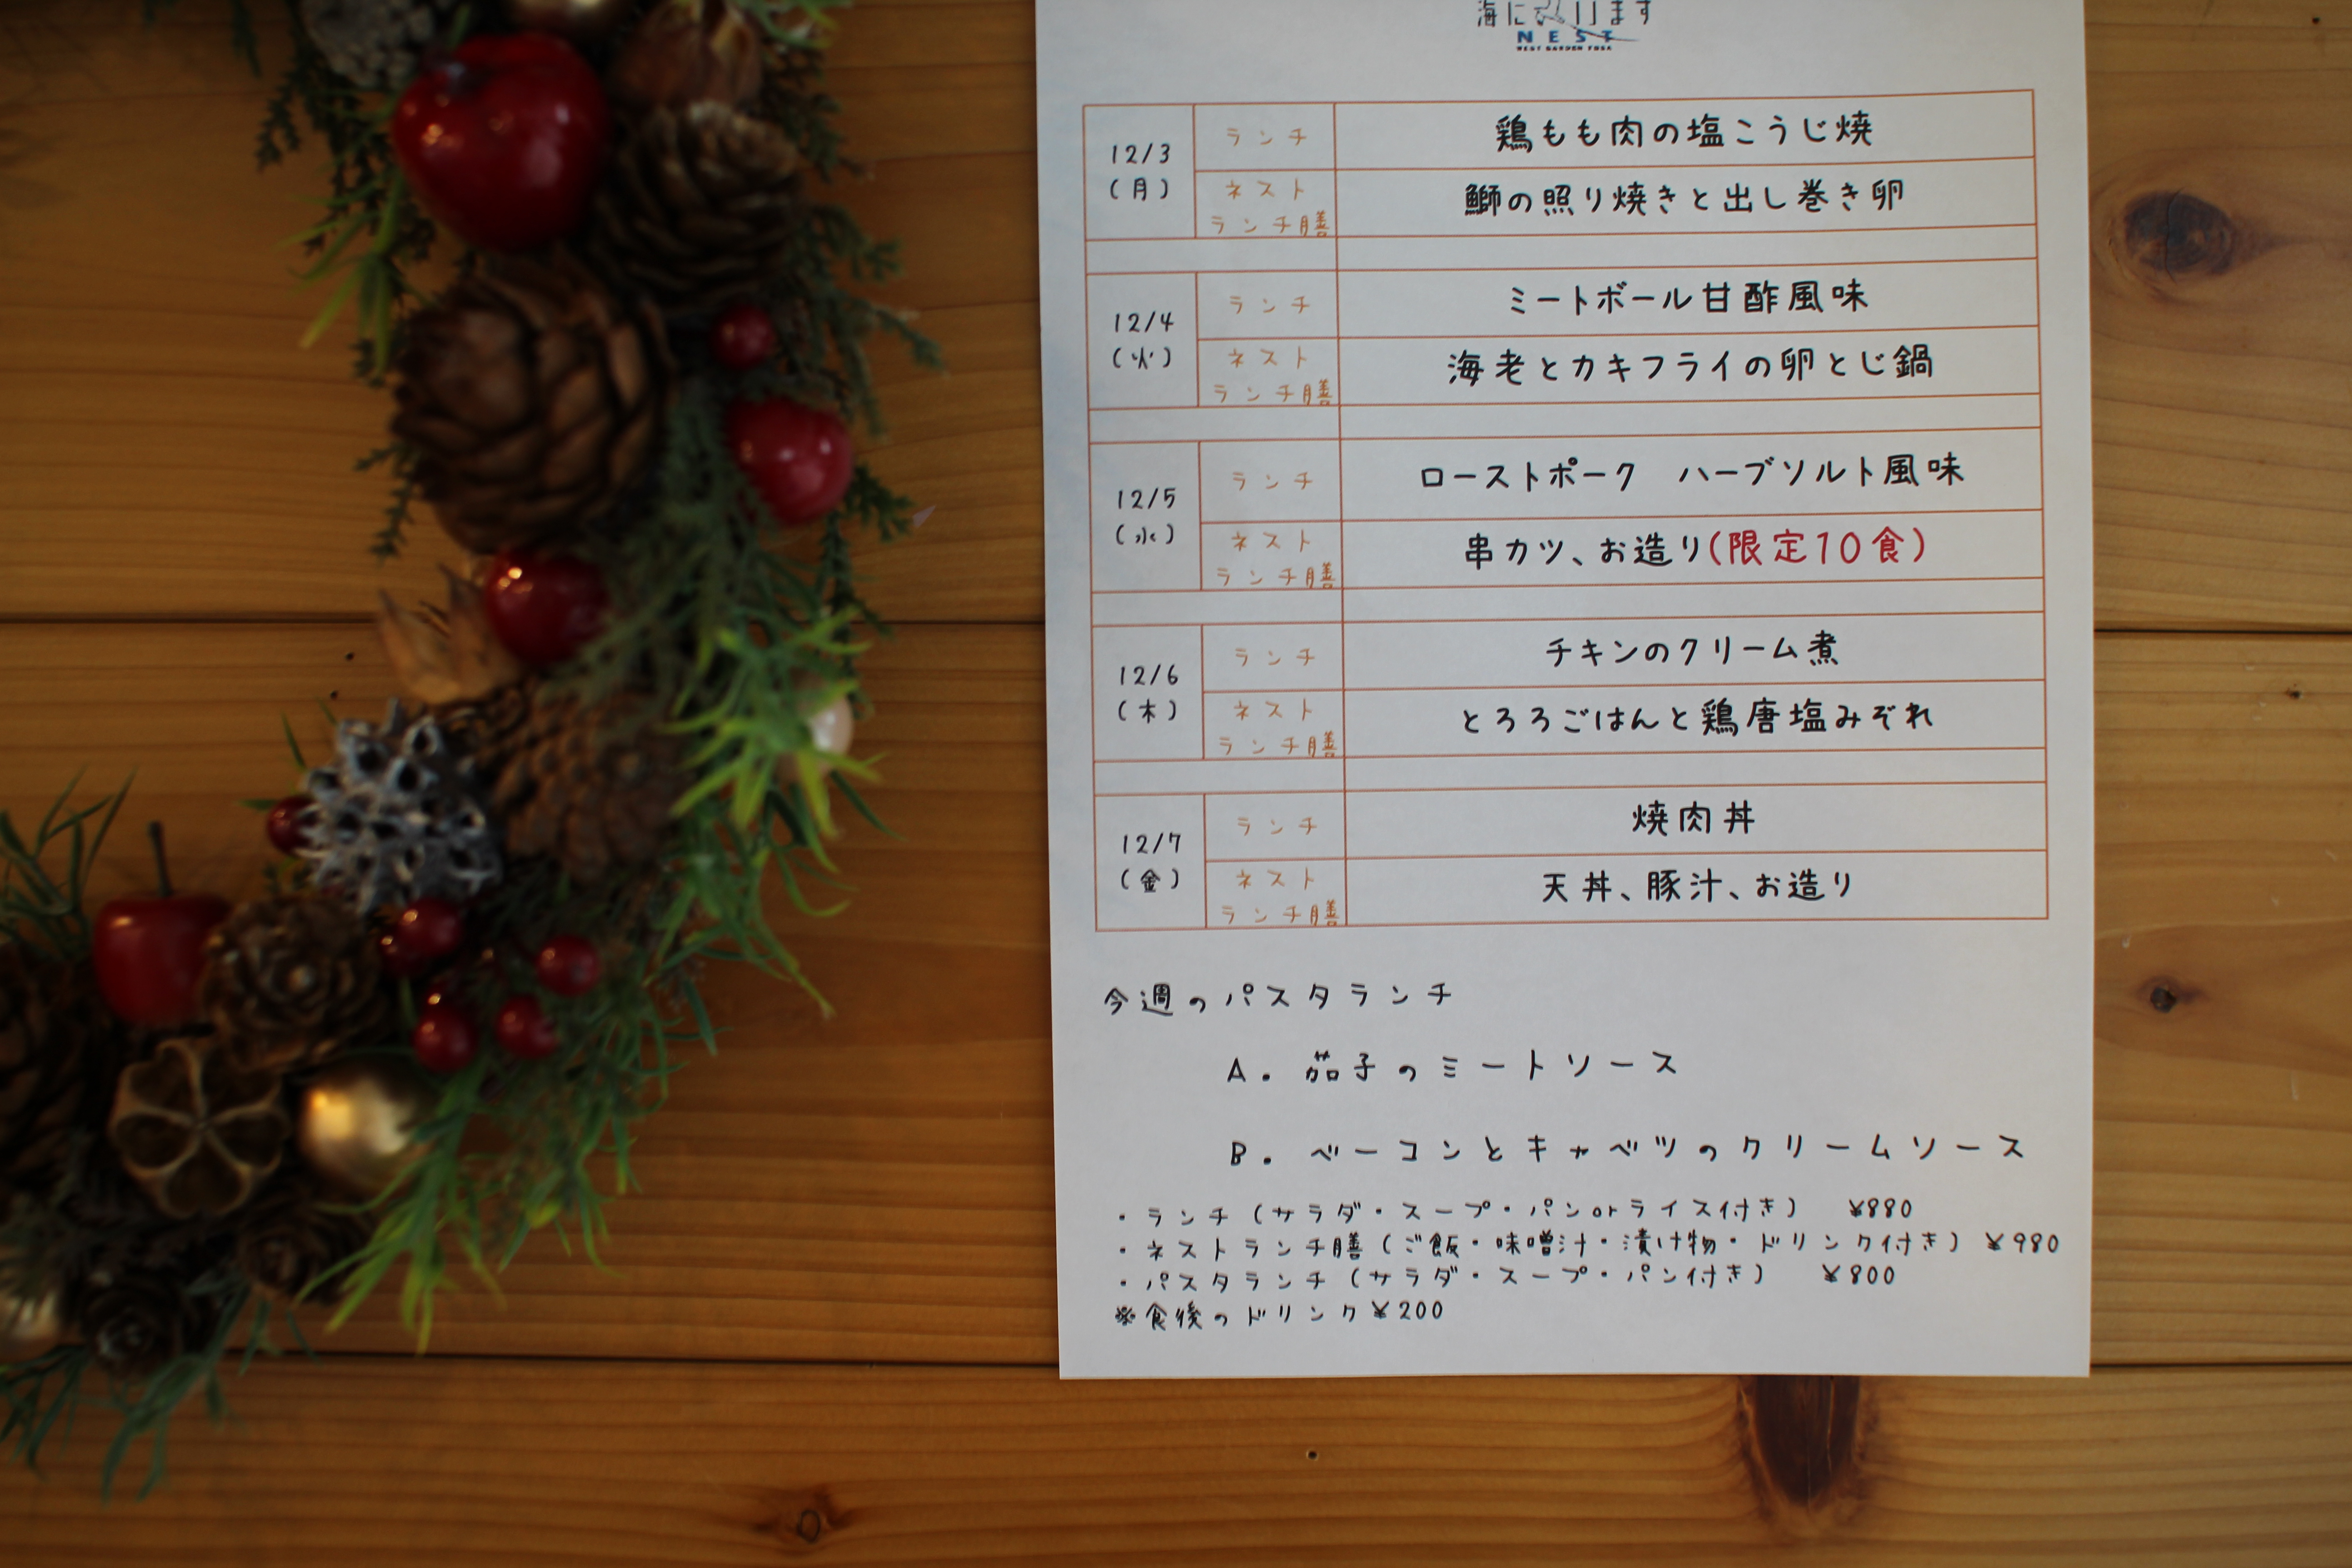 NEST
12/3
(月)
ランチ
鶏もも肉の塩こうじ焼
ネスト
ランチ膳
鰤の照り焼きと出し巻き卵
12/4
(火)
ランチ
ミートボール甘酢風味
ネスト
ランチ膳
海老とカキフライの卵とじ鍋
12/5
(水)
ランチ
ローストポーク　ハーブソルト風味
ネスト
ランチ膳
串カツ、お造り(限定10食)
12/6
(木)
ランチ
チキンのクリーム煮
ネスト
ランチ膳
とろろごはんと鶏唐塩みぞれ
12/7
(金)
ランチ
焼肉丼
ネスト
ランチ膳
天丼、豚汁、お造り
今週のパスタランチ
A. 茄子のミートソース
B. ベーコンとキャベツのクリームソース
・ランチ（サラダ・スープ・パンorライス付き）　¥880
・ネストランチ膳（ご飯・味噌汁・漬け物・ドリンク付き）¥980
・パスタランチ（サラダ・スープ・パン付き）　¥800
※食後のドリンク¥200